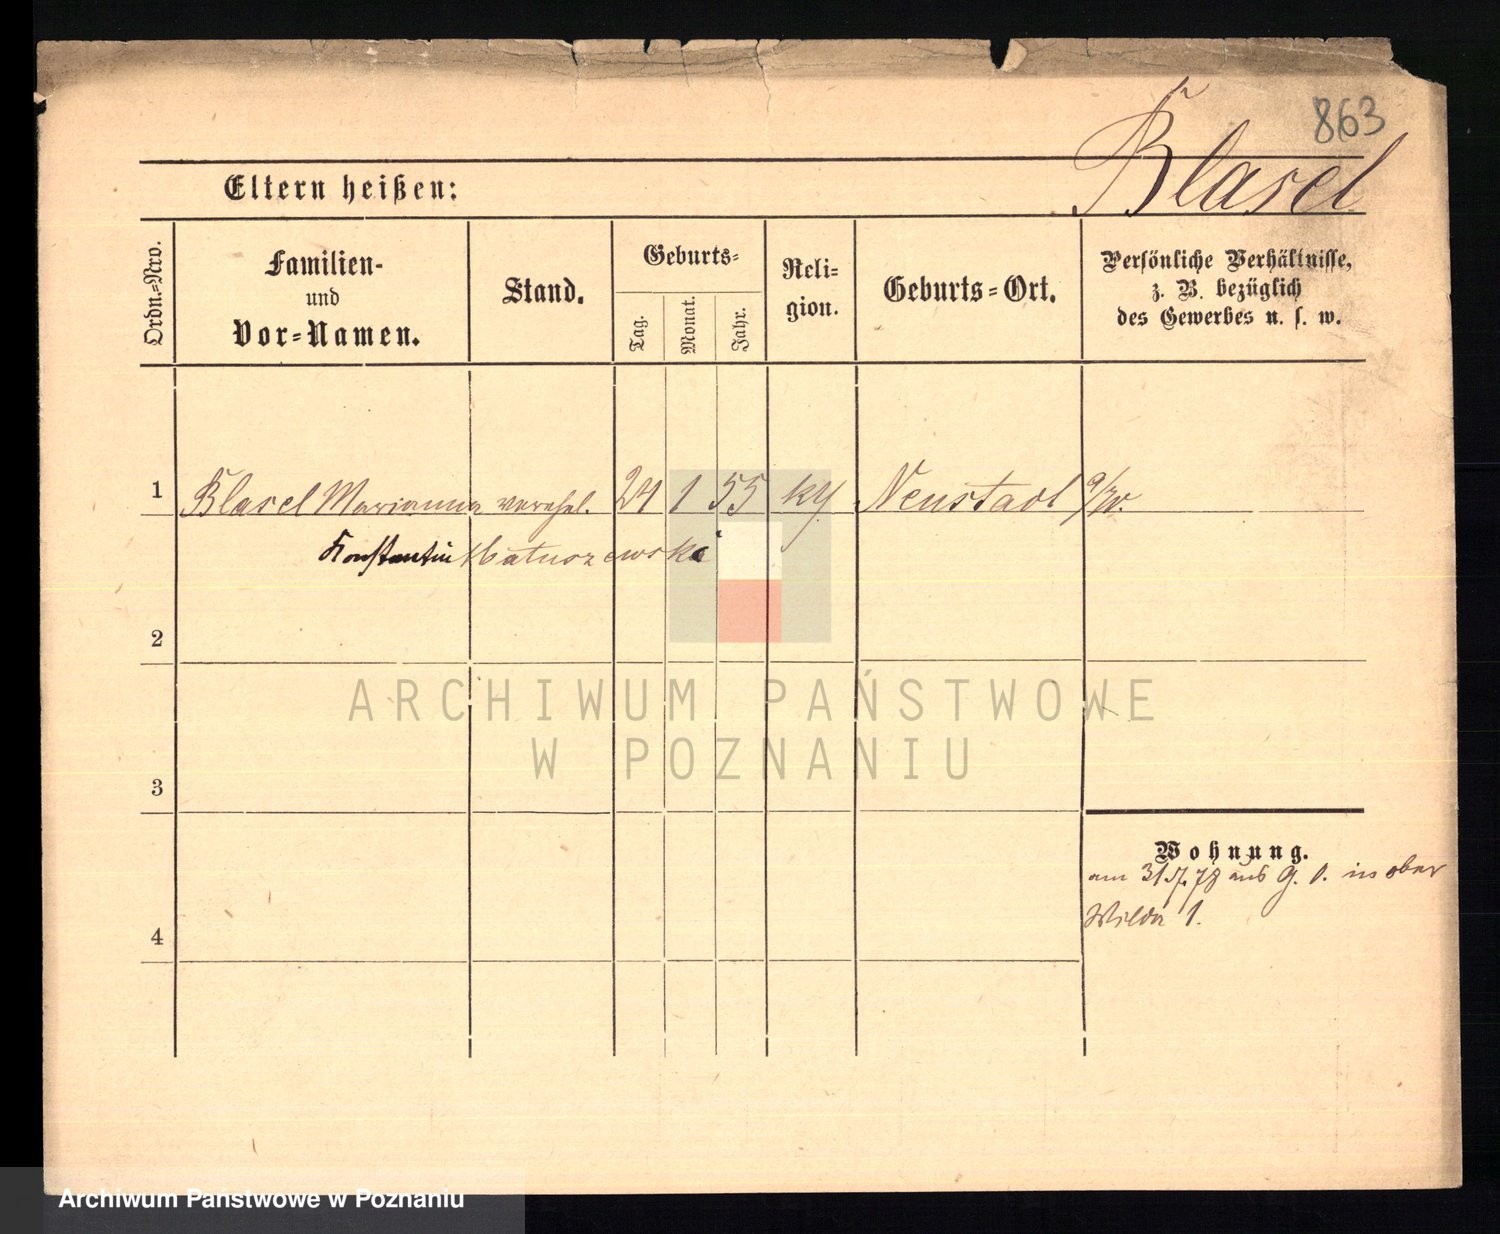 863
Blasel
Eltern heißen:
Ordn.=Nro.
Familien-
und
Vor=Namen.
Stand.
Geburts=
Tag.
Monat.
Jahr.
Reli=
gion.
Geburts=Ort.
Persönliche Verhältnisse,
z. B. bezüglich
des Gewerbes u. s. w.
1 Blasel Marianna verehel. 24 1 55 Neustadt a/W.
Konstantin Matuszewska
2
3
4
Wohnung.
am 31/5. 78 aus G. O. in ober
Wilda 1.
ARCHIWUM PAŃSTWOWE
W POZNANIU
Archiwum Państwowe w Poznaniu